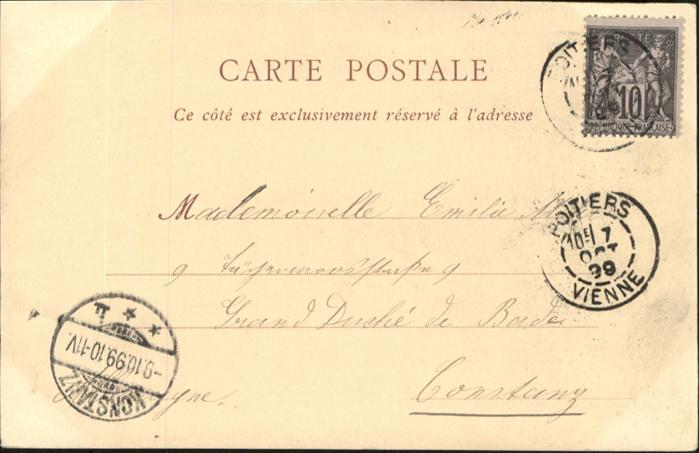 CARTE POSTALE
Ce côté est exclusivement réservé à l'adresse
POSTE
10
REPUBLIQUE FRANÇAISE
POITIERS
Mademoiselle Emilie
9 9
Grand Duché de Bade
Constanz
POITIERS
10E 7
OCT
99
VIENNE
KONSTANZ
-9.10.99.10-11V.